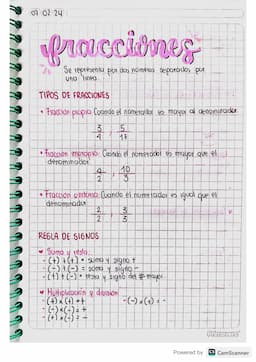 07·02·24
fracciones
Se representa por dos números separados por
una linea.
TIPOS DE FRACCIONES
• Fracción propia: Cuando el numerador es mayor al denominador
3/4 , 5/17
• Fracción impropia: Cuando el numerador es mayor que el
denominador
4/2 , 10/3
• Fracción entera: Cuando el numerador es igual que el
denominador
2/2 , 3/3
REGLA DE SIGNOS
Suma y resta:
- (+) + (+) = suma y signo +
- (-) + (-) = suma y signo -
- (+) + (-) = resta y signo del # mayor
Multiplicación y división
- (+) x (+) = +
- (-) x (-) = +
- (-) x (+) = -
- (+) x (-) = -
Powered by CamScanner